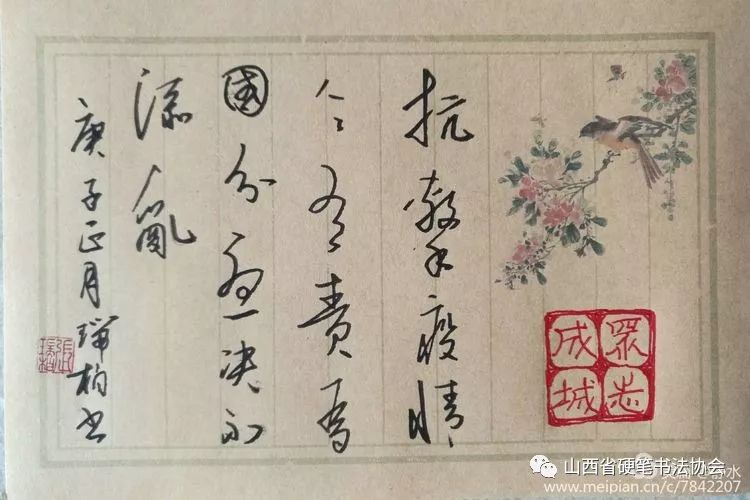 抗擊疫情
人人有責为
國分憂决不
添亂
庚子正月瑞柏书
眾志
成城
山西省硬笔书法协会
www.meipian.cn/c/7842207